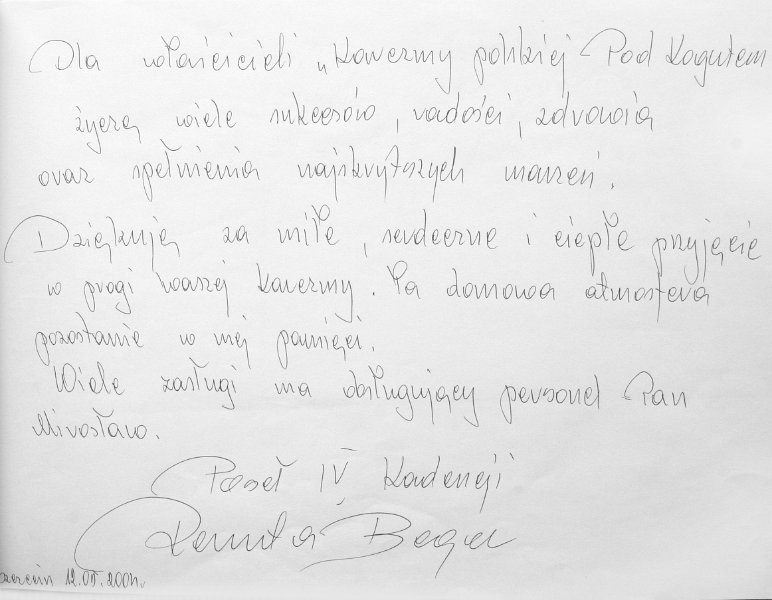 Dla właścicieli „Kawermy polskiej Pod Kogutem
życzę wiele sukcesów, radości, zdrowia
oraz spełnienia najskrytszych marzeń.
Dziękuję za miłe, serdeczne i ciepłe przyjęcie
w progi waszej Kawermy. Ta domowa atmosfera
pozostanie w mej pamięci.
Wiele zasługi ma obsługujący personel Pan
Mirosław.
Poseł IV Kadencji
Renata Beger
12.05.2004r.